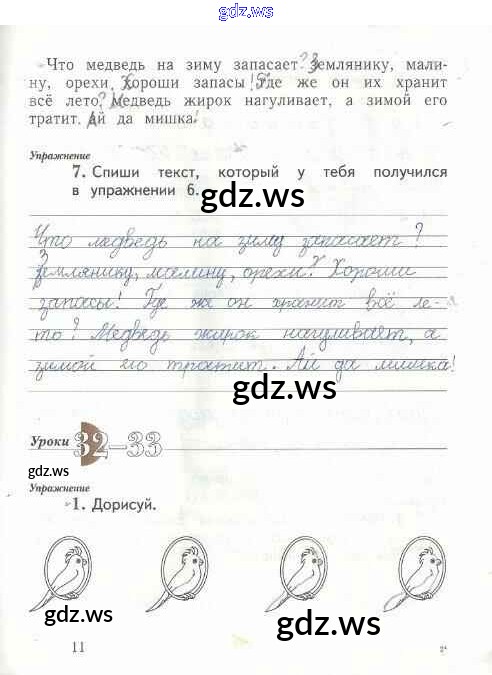 gdz.ws
Что медведь на зиму запасает? Землянику, мали-
ну, орехи Хороши запасы! Где же он их хранит
всё лето? Медведь жирок нагуливает, а зимой его
тратит. Ай да мишка!
Упражнение
7. Спиши текст, который у тебя получился
в упражнении 6.
gdz.ws
Что медведь на зиму запасает?
Землянику, малину, орехи? Хороши
запасы! Где же он хранит всё ле-
то? Медведь жирок нагуливает, а
зимой его тратит. Ай да мишка!
gdz.ws
Уроки 32–33
gdz.ws
Упражнение
1. Дорисуй.
gdz.ws
gdz.ws
gdz.ws
11
2*